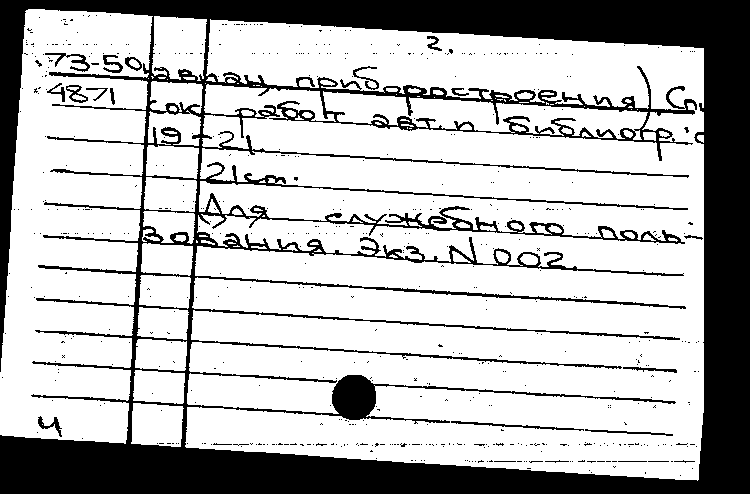 2.
73-50 авиац. приборостроения) Спи
4871 сок работ авт. и библиогр.: с
19-21.
21 cm.
Для служебного поль-
зования. Экз. N 002.
4